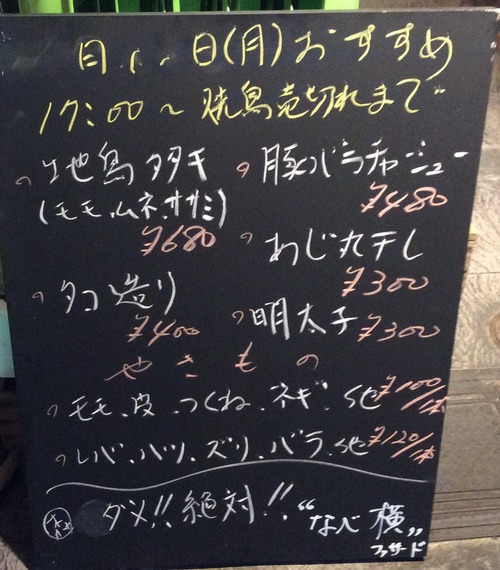 日(月)おすすめ
17:00〜焼鳥売切れまで
地鳥タタキ
(モモ、ムネ、ササミ)
¥680
タコ造り
¥400
豚バラチャーシュー
¥480
あじ丸干し
¥300
明太子 ¥300
やきもの
モモ、皮、つくね、ネギ、他 ¥100/1本
レバ、ハツ、ズリ、バラ、他 ¥120/1本
ダメ!!絶対!! “なべ横”
ファサード